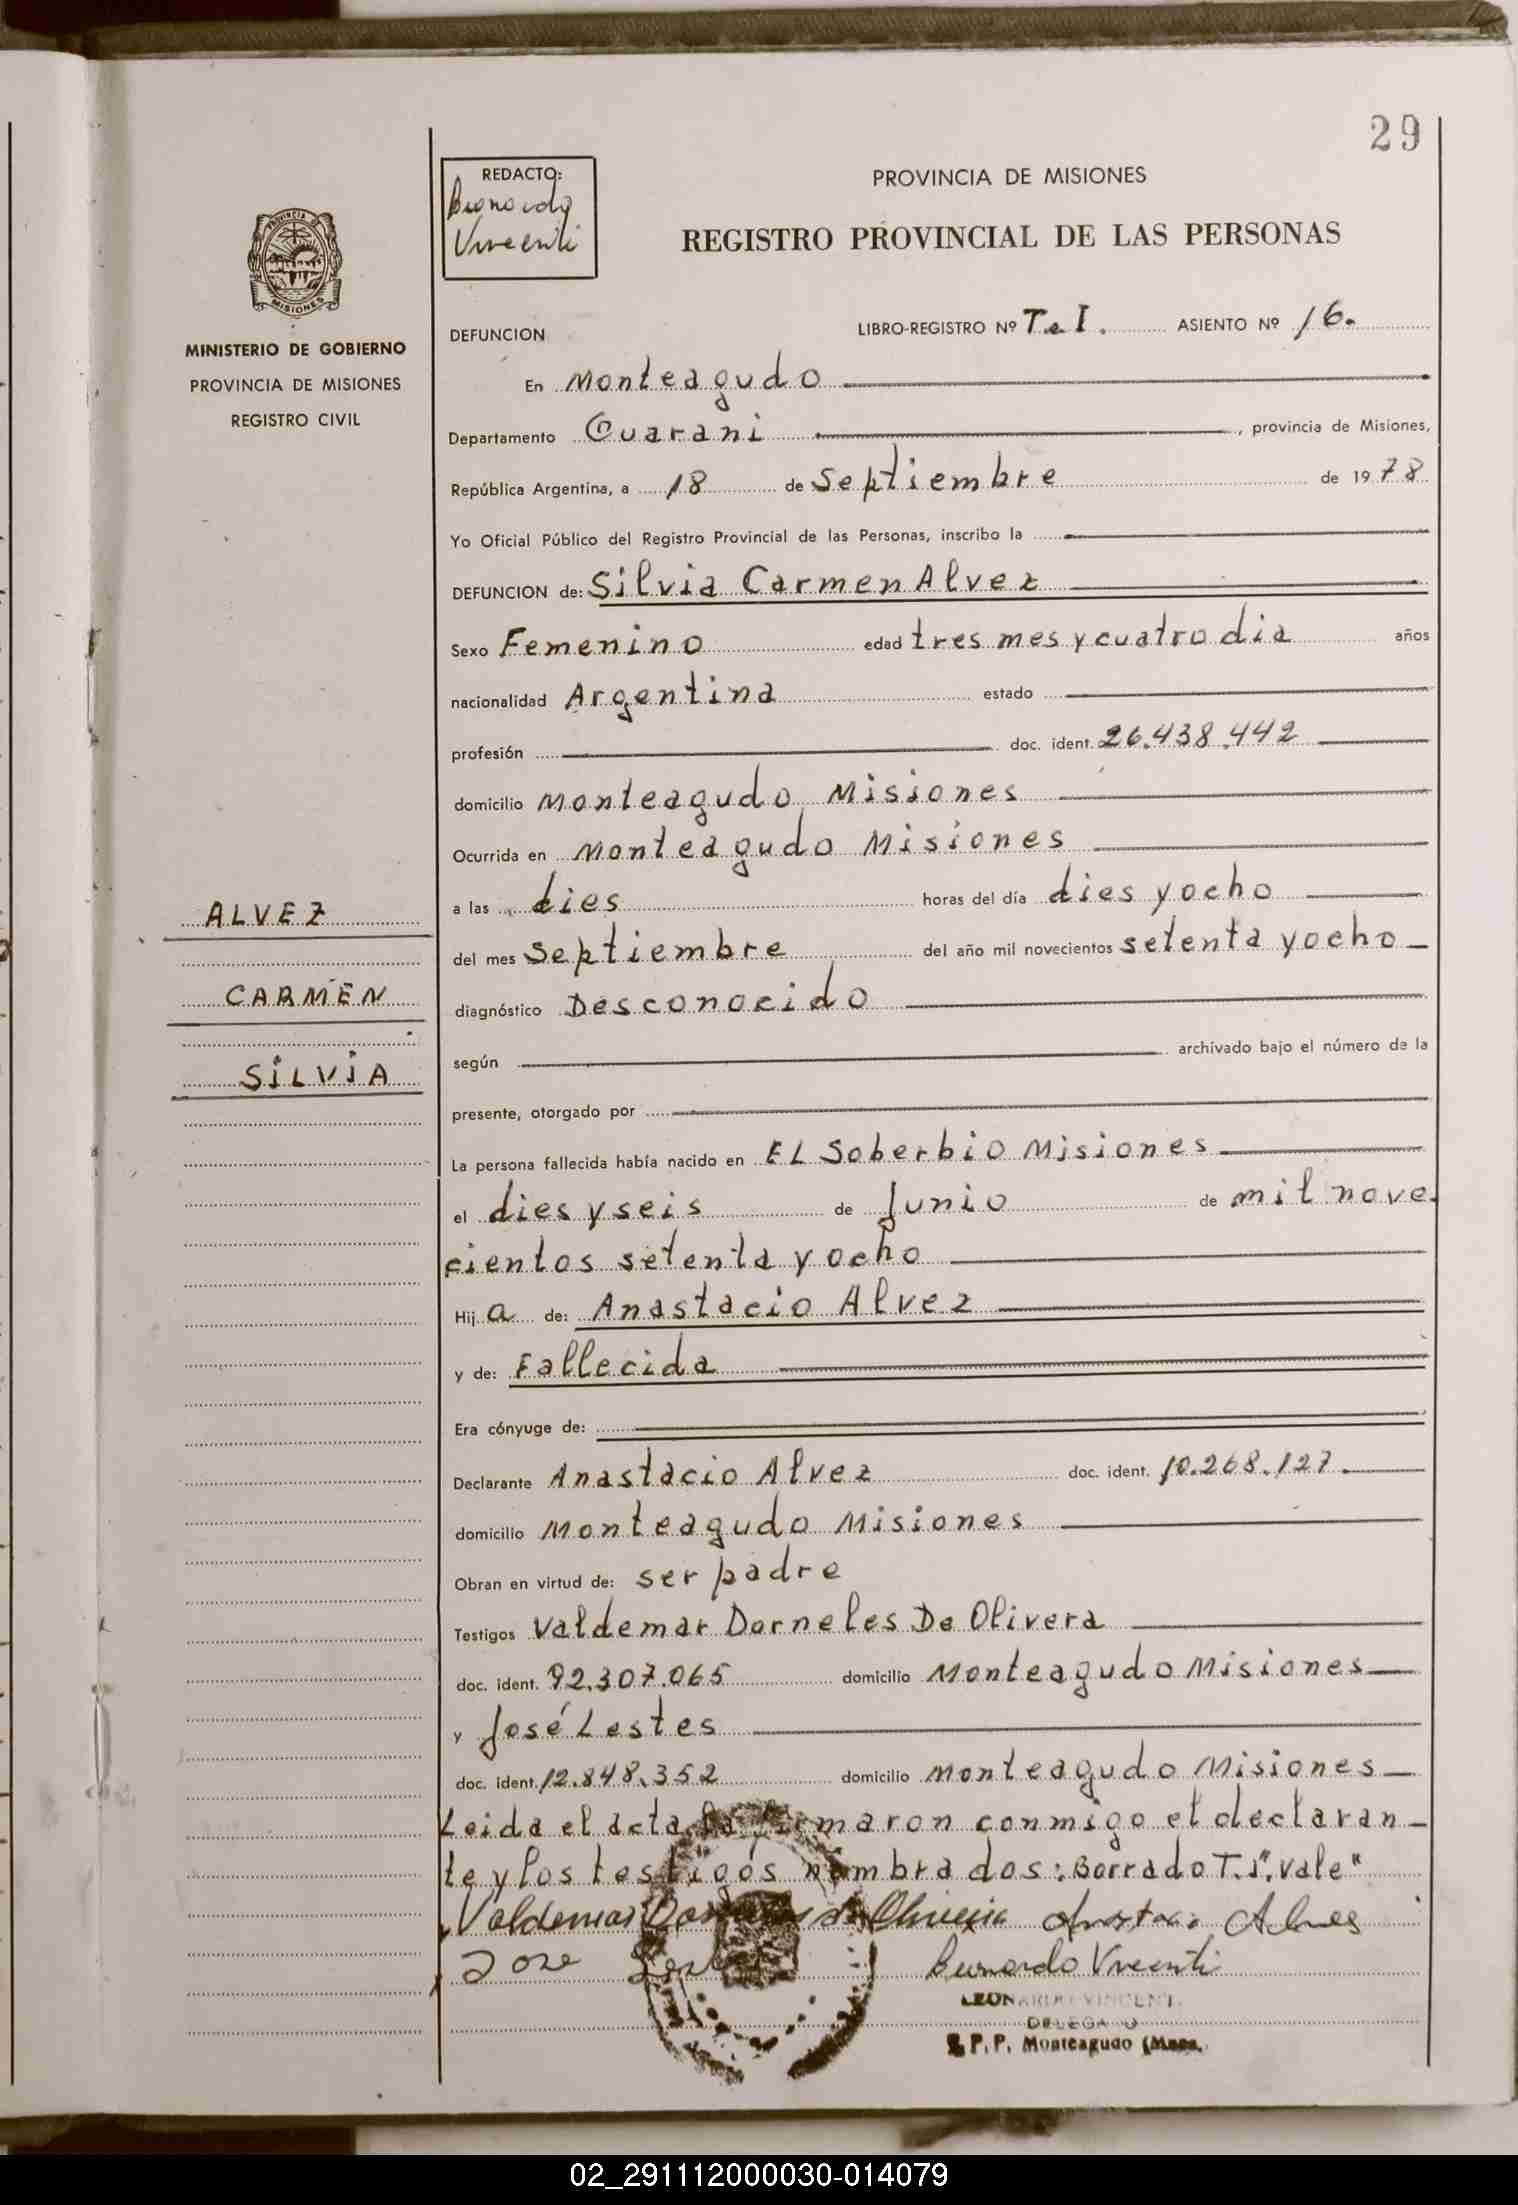 29
REDACTO:
PROVINCIA DE MISIONES
REGISTRO PROVINCIAL DE LAS PERSONAS
PROVINCIA DE
MISIONES
MINISTERIO DE GOBIERNO
PROVINCIA DE MISIONES
REGISTRO CIVIL
DEFUNCION LIBRO-REGISTRO Nº T. I. ASIENTO Nº 16.
En Monteagudo
Departamento Guarani, provincia de Misiones,
República Argentina, a 18 de Septiembre de 1978
Yo Oficial Público del Registro Provincial de las Personas, inscribo la
DEFUNCION de: Silvia Carmen Alvez
Sexo Femenino edad tres mes y cuatro dia años
nacionalidad Argentina estado
profesión doc. ident. 26.438.442
domicilio Monteagudo Misiones
Ocurrida en Monteagudo Misiones
a las dies horas del día dies y ocho
del mes Septiembre del año mil novecientos setenta y ocho
diagnóstico Desconocido
según archivado bajo el número de la
presente, otorgado por
La persona fallecida había nacido en EL Soberbio Misiones
el dies y seis de Junio de mil nove
cientos setenta y ocho
Hij a de: Anastacio Alvez
y de: Fallecida
Era cónyuge de:
Declarante Anastacio Alvez doc. ident. 10.268.127.
domicilio Monteagudo Misiones
Obran en virtud de: ser padre
Testigos Valdemar Dorneles De Olivera
doc. ident. 92.307.065 domicilio Monteagudo Misiones
y José Lestes
doc. ident. 12.848.352 domicilio Monteagudo Misiones
Leida el acta la firmaron conmigo el declaran-
te y los testigos nombrados: Borrado T. I". Vale"
Valdemar de Oliveira Alves
Jose
DELEGADO
R.P.P. Monteagudo (Mnes.
ALVEZ
CARMEN
SILVIA
02_291112000030-014079